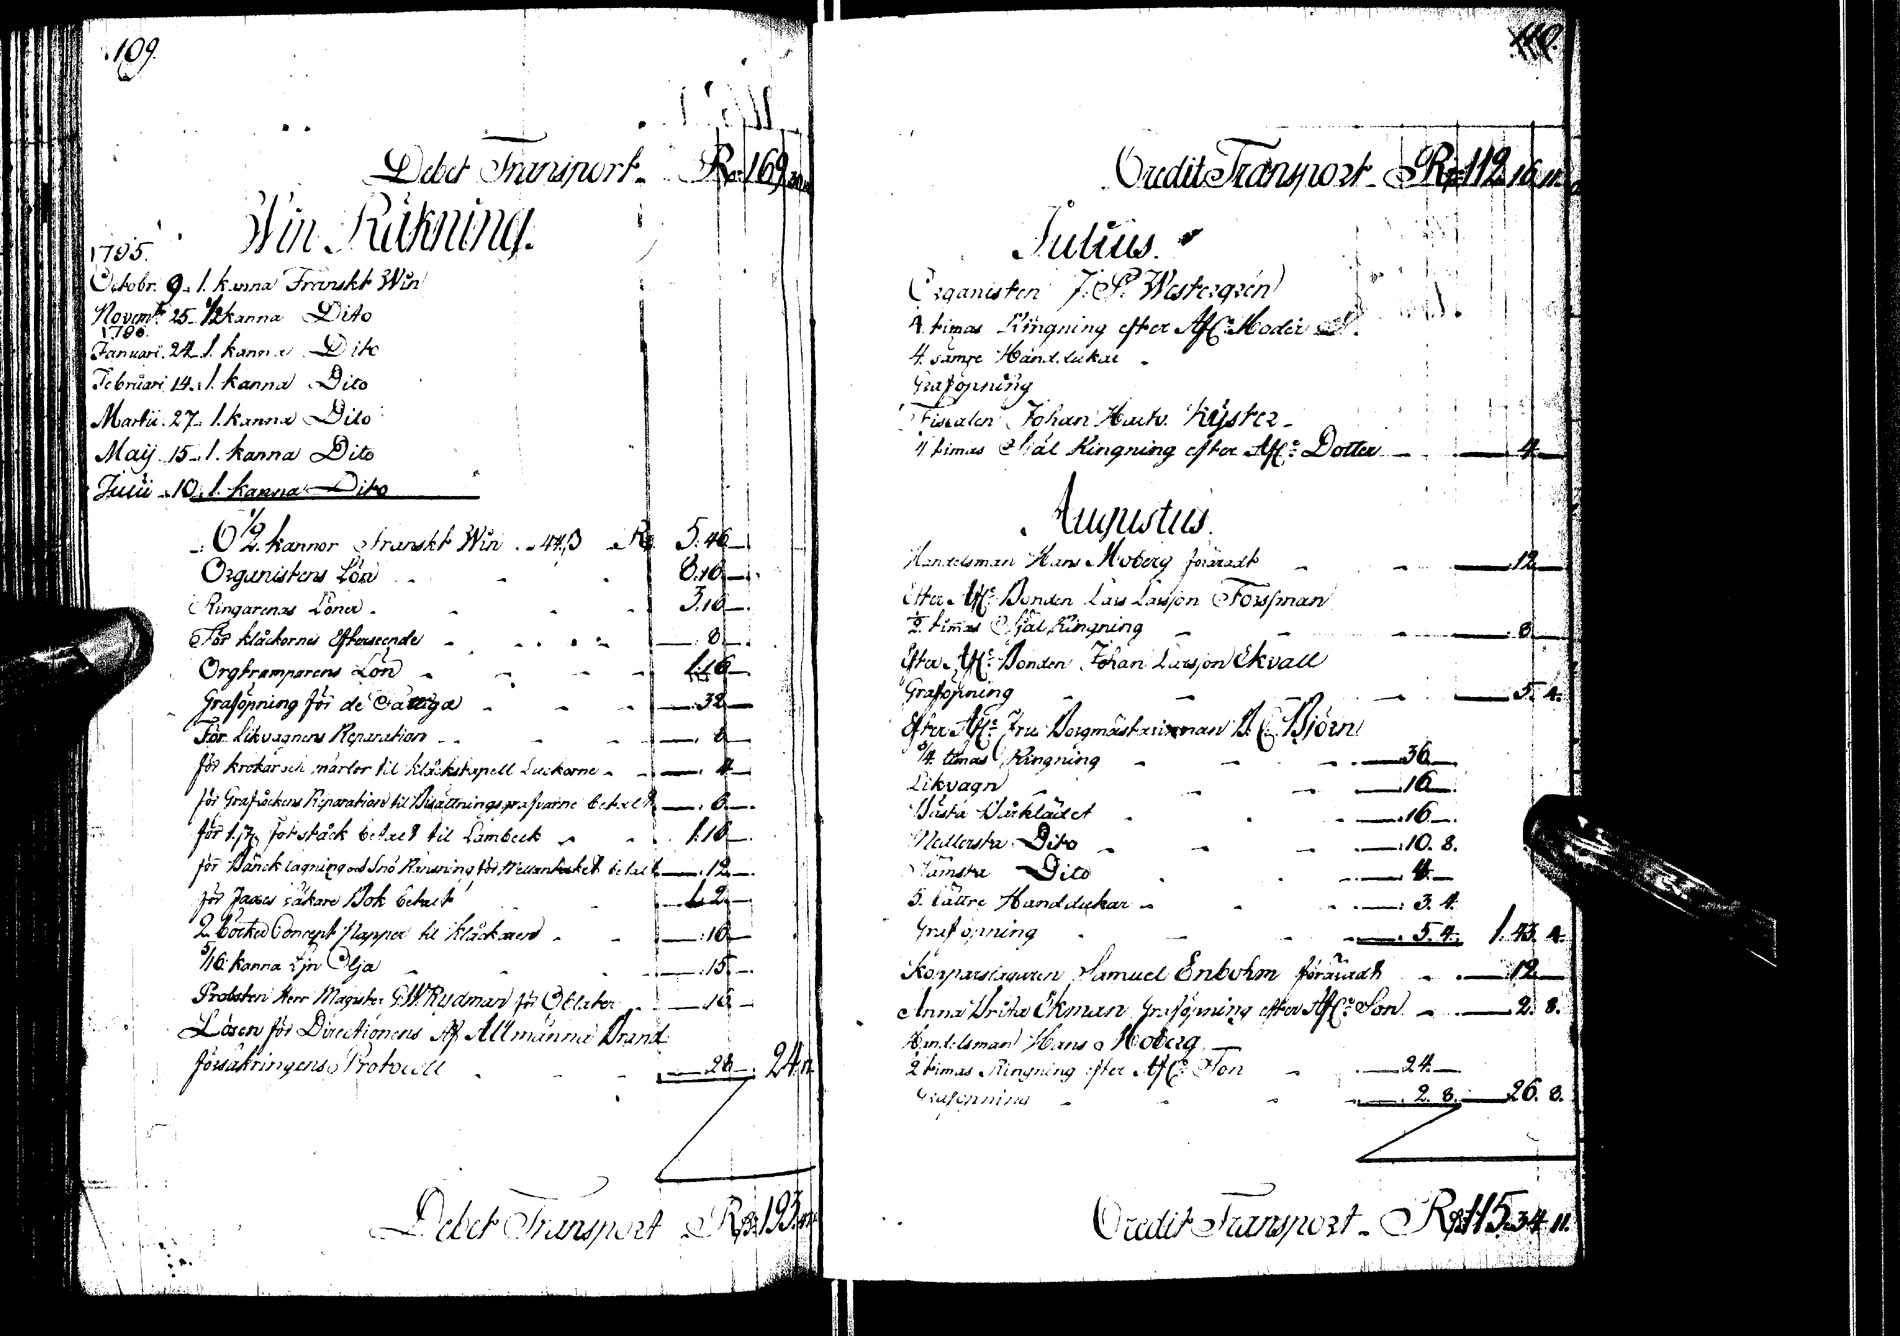 109.
Debet Transport. Rdr 169
Win Räkning.
1795.
Octobr. 9. 1. kanna Franskt Win
Novembr 25. 1/2 kanna Dito
1796.
Januari. 24. 1. kanna Dito
Februari 14. 1. kanna Dito
Martii. 27. 1. kanna Dito
Maij. 15. 1. kanna Dito
Julii. 10. 1. kanna Dito
6 1/2 kannor Franskt Win. 44ß R 5. 46
Organistens Lön 16
Ringarenas Löner. 3. 16
För klåckornes Efterseende 8
Orgtramparens Lön 1. 16
Graföpning för de Fattiga 32
För Likvagnens Reparation
för krokar och märlor til klåckstapell Luckorne 4
för Grafåckens Reparation til Bisättningsgrafvarne betalt 6
för 1. Fotståck betalt til Lambeck 1. 16
för betalt 12
för räkare Bok betalt 2
2 böcker Concept papper til klåckaren 16
5/16. kanna Olja 15
Probsten Herr Magister G. W. Rydman för Oblater 16
Lösen för Directionens Af Allmänna Brand
försäkringens Protocoll 24
Debet Transport Rdr 193

110.
Credit Transport. Rdr 112. 16. 11.
Julius.
Organisten J. P. Westergrén
4 timas Ringning efter Aflne Moder
4. sämre Handdukar
Grafopning
Fiscalen Johan Hartv. Keyster
4 timas Själ Ringning efter Aflne Dotter 4
Augustus.
Handelsman Hans Moberg föräradt 12
Efter Aflne Bonden Lars Larsson Forssman
2. timas Själ Ringning 8
Efter Aflne Bonden Johan Larsson Ekvall
Grafopning 5. 4.
Efter Aflne Fru Borgmästarinnan B. C. Björn
3/4 timas Ringning 36
Likvagn 16
Bästa Bårklädet 16
Medlersta Dito 10. 8.
Sämsta Dito 4
5. bättre Handdukar 3. 4.
Grafopning 5. 4. 1. 43. 4.
Samuel Enbohm föräradt 12
Anna Brita Ekman Grafopning efter Aflne Son 2. 8.
Handelsman Hans Moberg
2 timas Ringning efter Aflne Son 24
Grafopning 2. 8. 26. 8.
Credit Transport. Rdr 115. 34. 11.